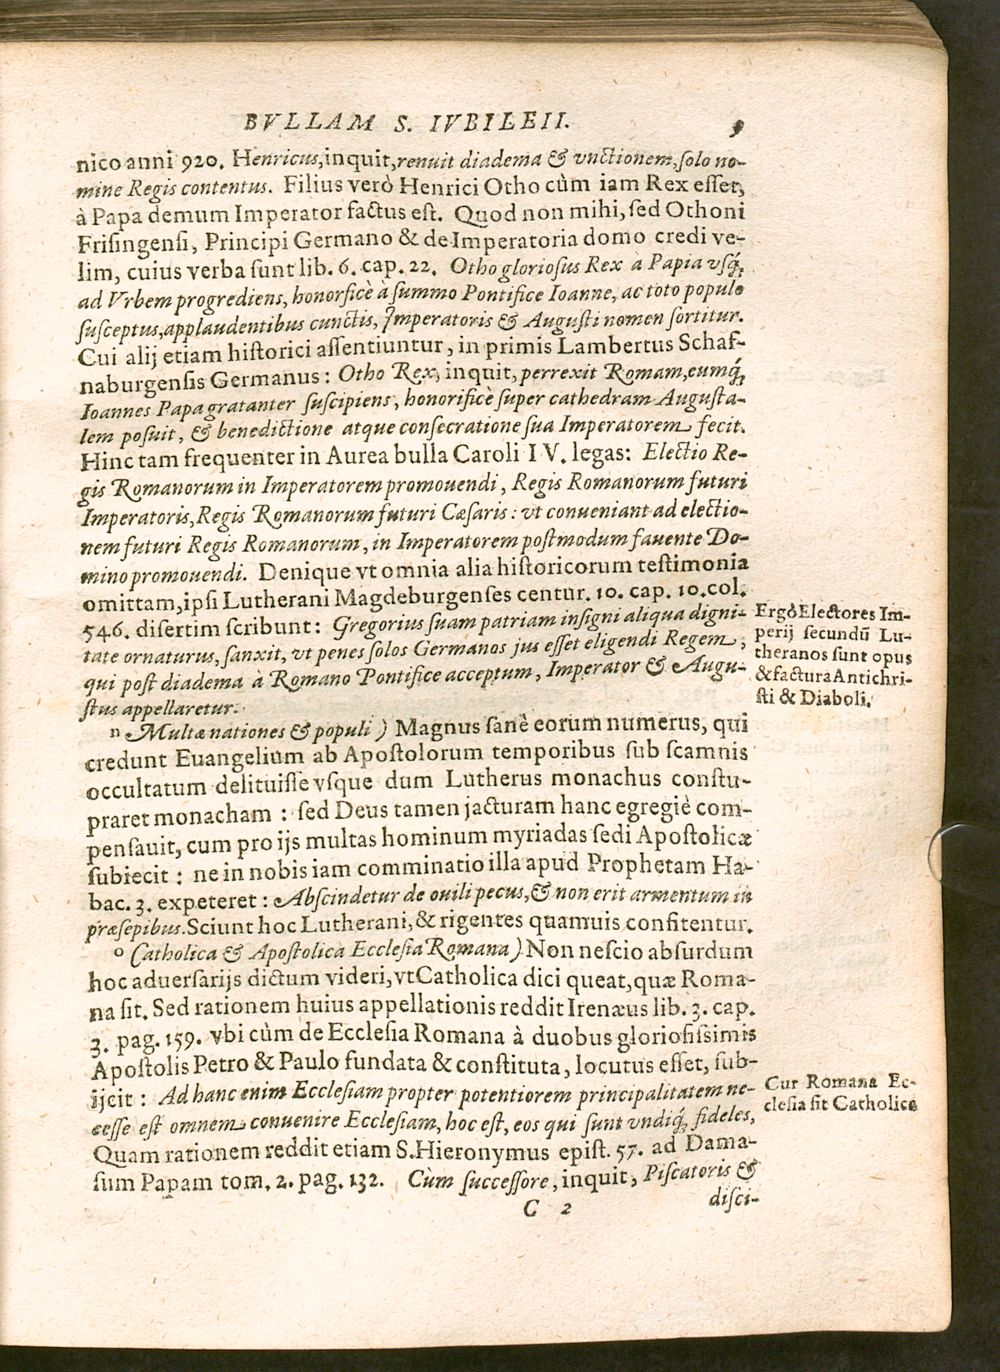 BVLLAM S. IVBILEII. 9
nico anni 920. Henricus, inquit, renuit diadema & vnctionem, ſolo no-
mine Regis contentus. Filius verò Henrici Otho cùm iam Rex eſſet,
à Papa demum Imperator factus eſt. Quod non mihi, ſed Othoni
Friſingenſi, Principi Germano & de Imperatoria domo credi ve-
lim, cuius verba ſunt lib. 6. cap. 22. Otho glorioſus Rex a Papia vſq́;
ad Vrbem progrediens, honorficè à ſummo Pontifice Ioanne, ac toto populo
ſuſceptus, applaudentibus cunctis, Imperatoris & Auguſti nomen ſortitur.
Cui alij etiam hiſtorici aſſentiuntur, in primis Lambertus Schaf-
naburgenſis Germanus: Otho Rex, inquit, perrexit Romam, eumq́;
Ioannes Papa gratanter ſuſcipiens, honorificè ſuper cathedram Auguſta-
lem poſuit, & benedictione atque conſecratione ſua Imperatorem fecit.
Hinc tam frequenter in Aurea bulla Caroli IV. legas: Electio Re-
gis Romanorum in Imperatorem promouendi, Regis Romanorum futuri
Imperatoris, Regis Romanorum futuri Cæſaris: vt conueniant ad electio-
nem futuri Regis Romanorum, in Imperatorem poſtmodum fauente Do-
mino promouendi. Denique vt omnia alia hiſtoricorum teſtimonia
omittam, ipſi Lutherani Magdeburgenſes centur. 10. cap. 10. col.
546. diſertim ſcribunt: Gregorius ſuam patriam inſigni aliqua digni-
tate ornaturus, ſanxit, vt penes ſolos Germanos jus eſſet eligendi Regem,
qui poſt diadema à Romano Pontifice acceptum, Imperator & Augu-
ſtus appellaretur.
Ergò Electores Im-
perij ſecundũ Lu-
theranos ſunt opus
& factura Antichri-
ſti & Diaboli.
n Multæ nationes & populi) Magnus ſanè eorum numerus, qui
credunt Euangelium ab Apoſtolorum temporibus ſub ſcamnis
occultatum delituiſſe vſque dum Lutherus monachus conſtu-
praret monacham: ſed Deus tamen jacturam hanc egregiè com-
penſauit, cum pro ijs multas hominum myriadas ſedi Apoſtolicæ
ſubiecit: ne in nobis iam comminatio illa apud Prophetam Ha-
bac. 3. expeteret: Abſcindetur de ouili pecus, & non erit armentum in
præſepibus. Sciunt hoc Lutherani, & rigentes quamuis confitentur.
o Catholica & Apoſtolica Eccleſia Romana) Non neſcio abſurdum
hoc aduerſarijs dictum videri, vt Catholica dici queat, quæ Roma-
na ſit. Sed rationem huius appellationis reddit Irenæus lib. 3. cap.
3. pag. 159. vbi cùm de Eccleſia Romana à duobus glorioſiſſimis
Apoſtolis Petro & Paulo fundata & conſtituta, locutus eſſet, ſub-
ijcit: Ad hanc enim Eccleſiam propter potentiorem principalitatem ne-
ceſſe eſt omnem conuenire Eccleſiam, hoc eſt, eos qui ſunt vndiq́; fideles,
Quam rationem reddit etiam S. Hieronymus epiſt. 57. ad Dama-
ſum Papam tom. 2. pag. 132. Cùm ſucceſſore, inquit, Piſcatoris &
Cur Romana Ec-
cleſia ſit Catholica
C 2 diſci-